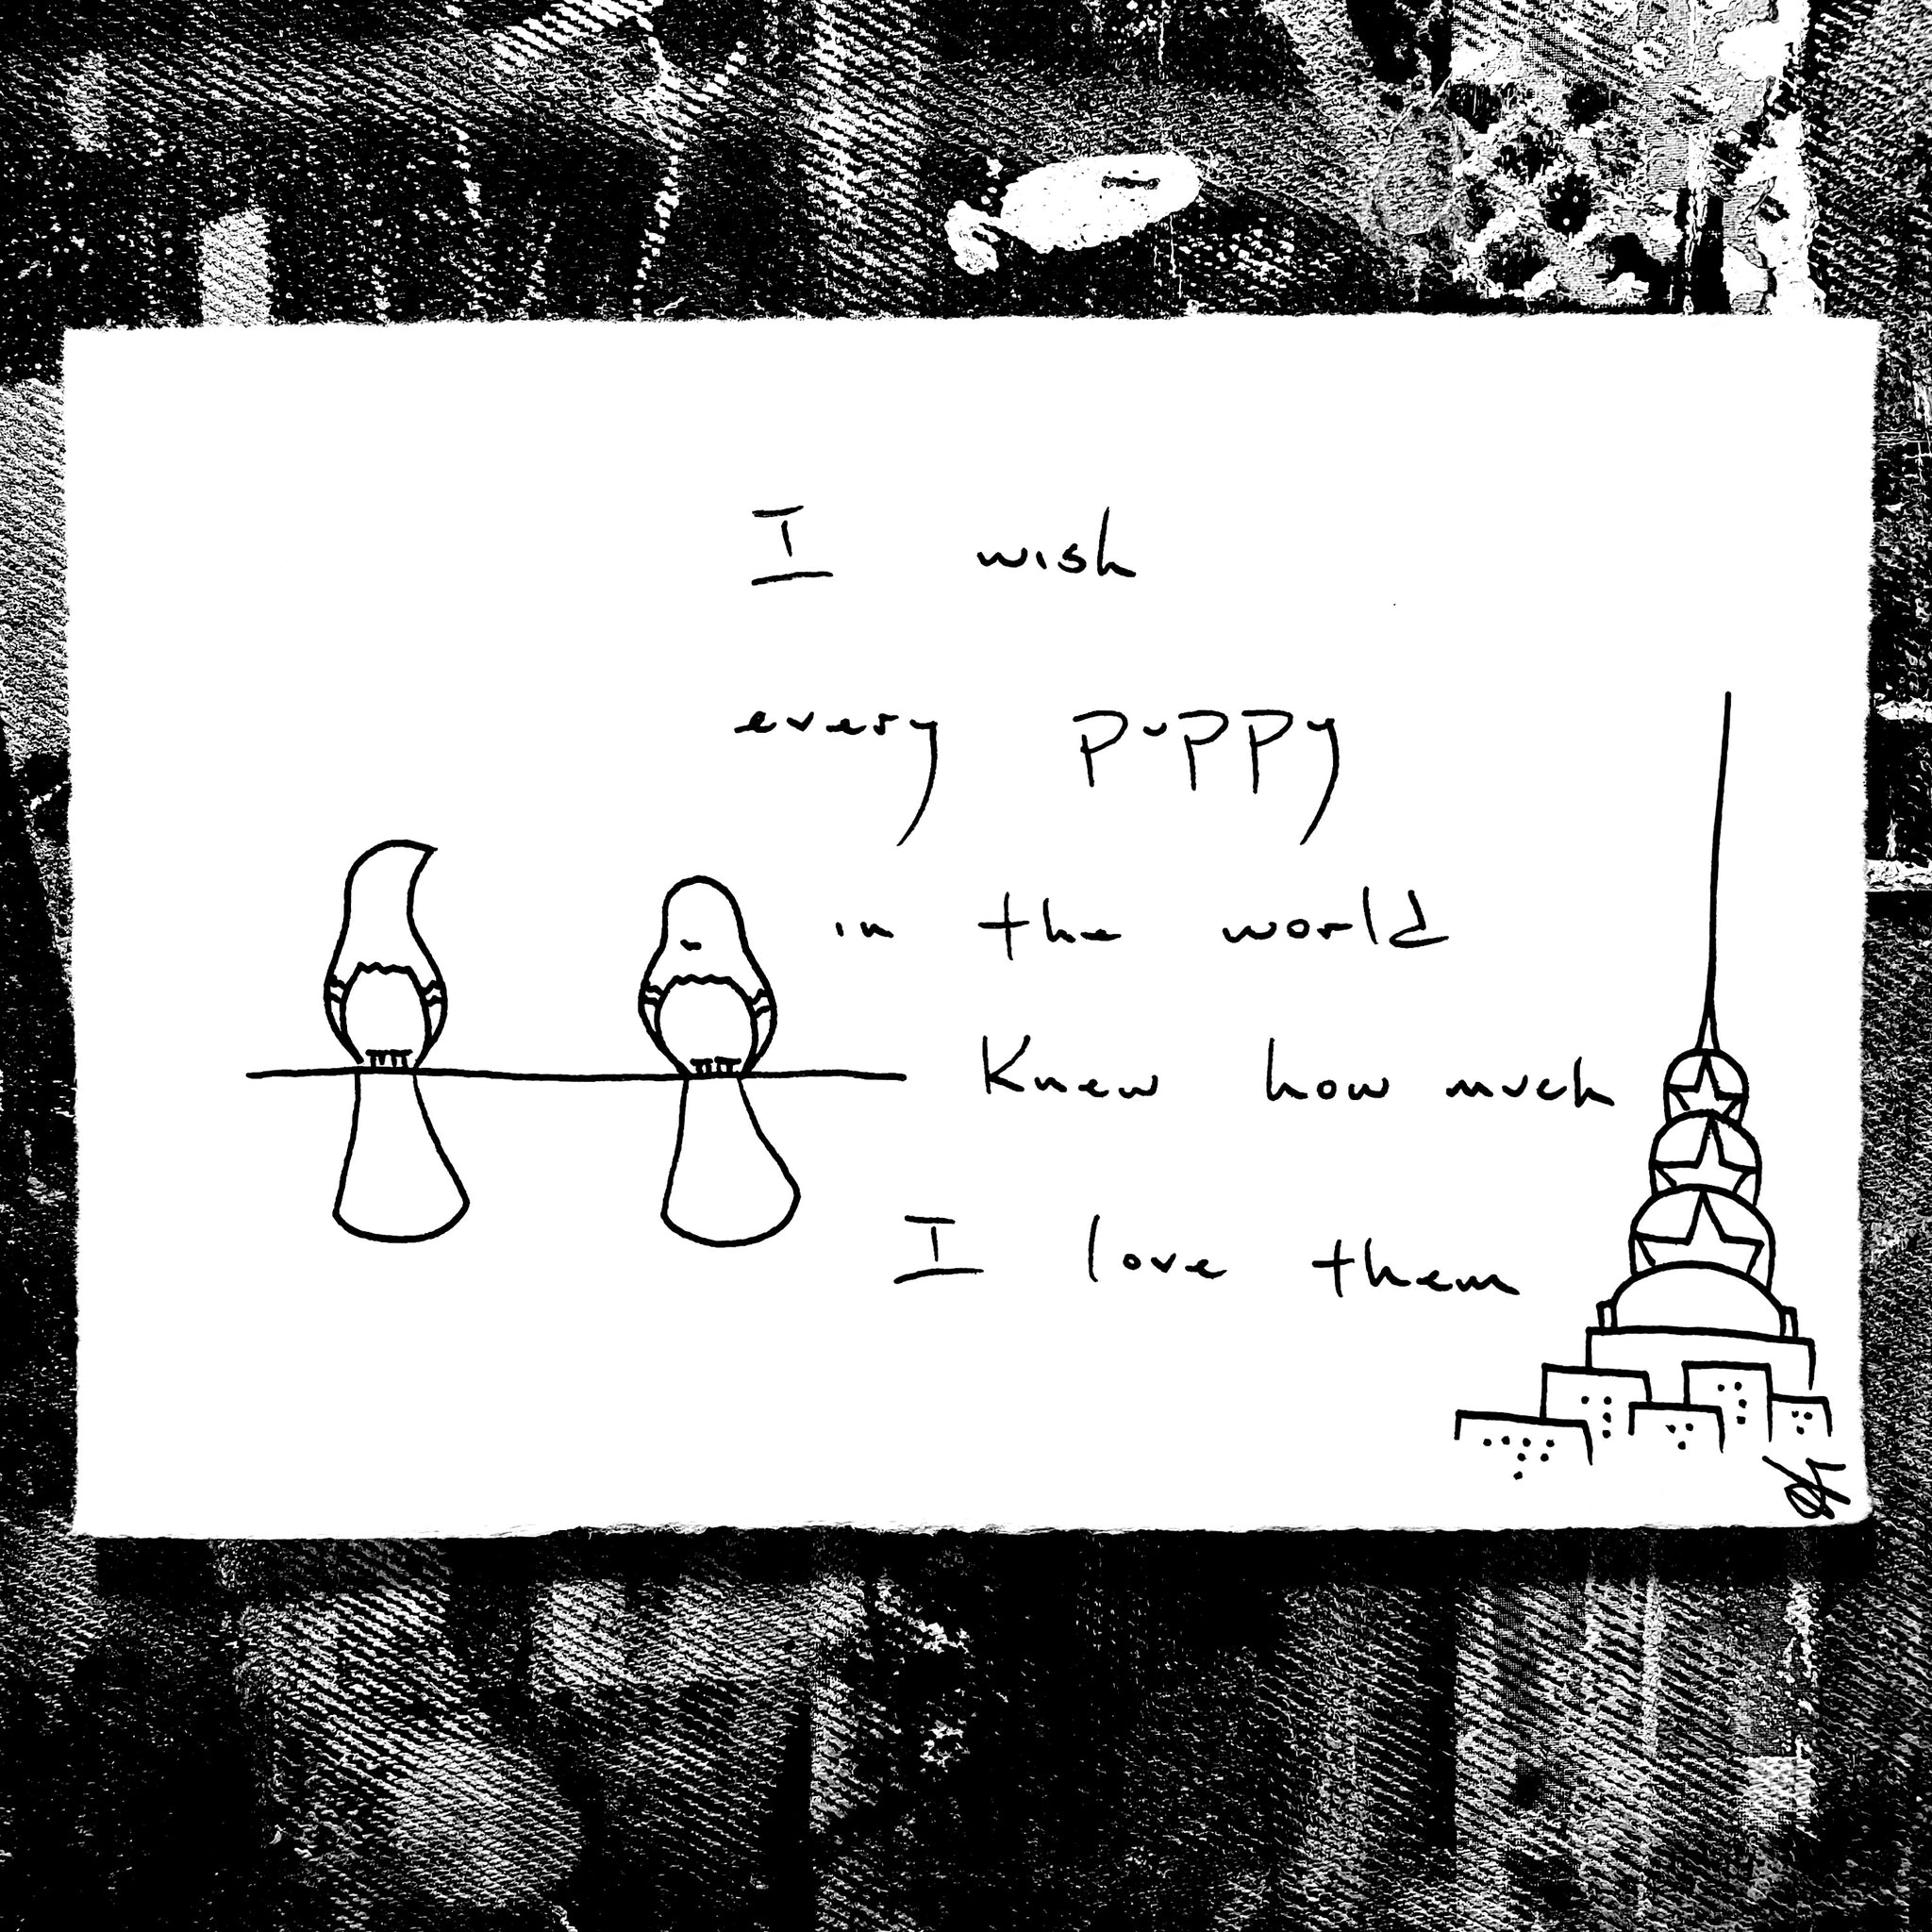 I wish
every puppy
in the world
Knew how much
I love them